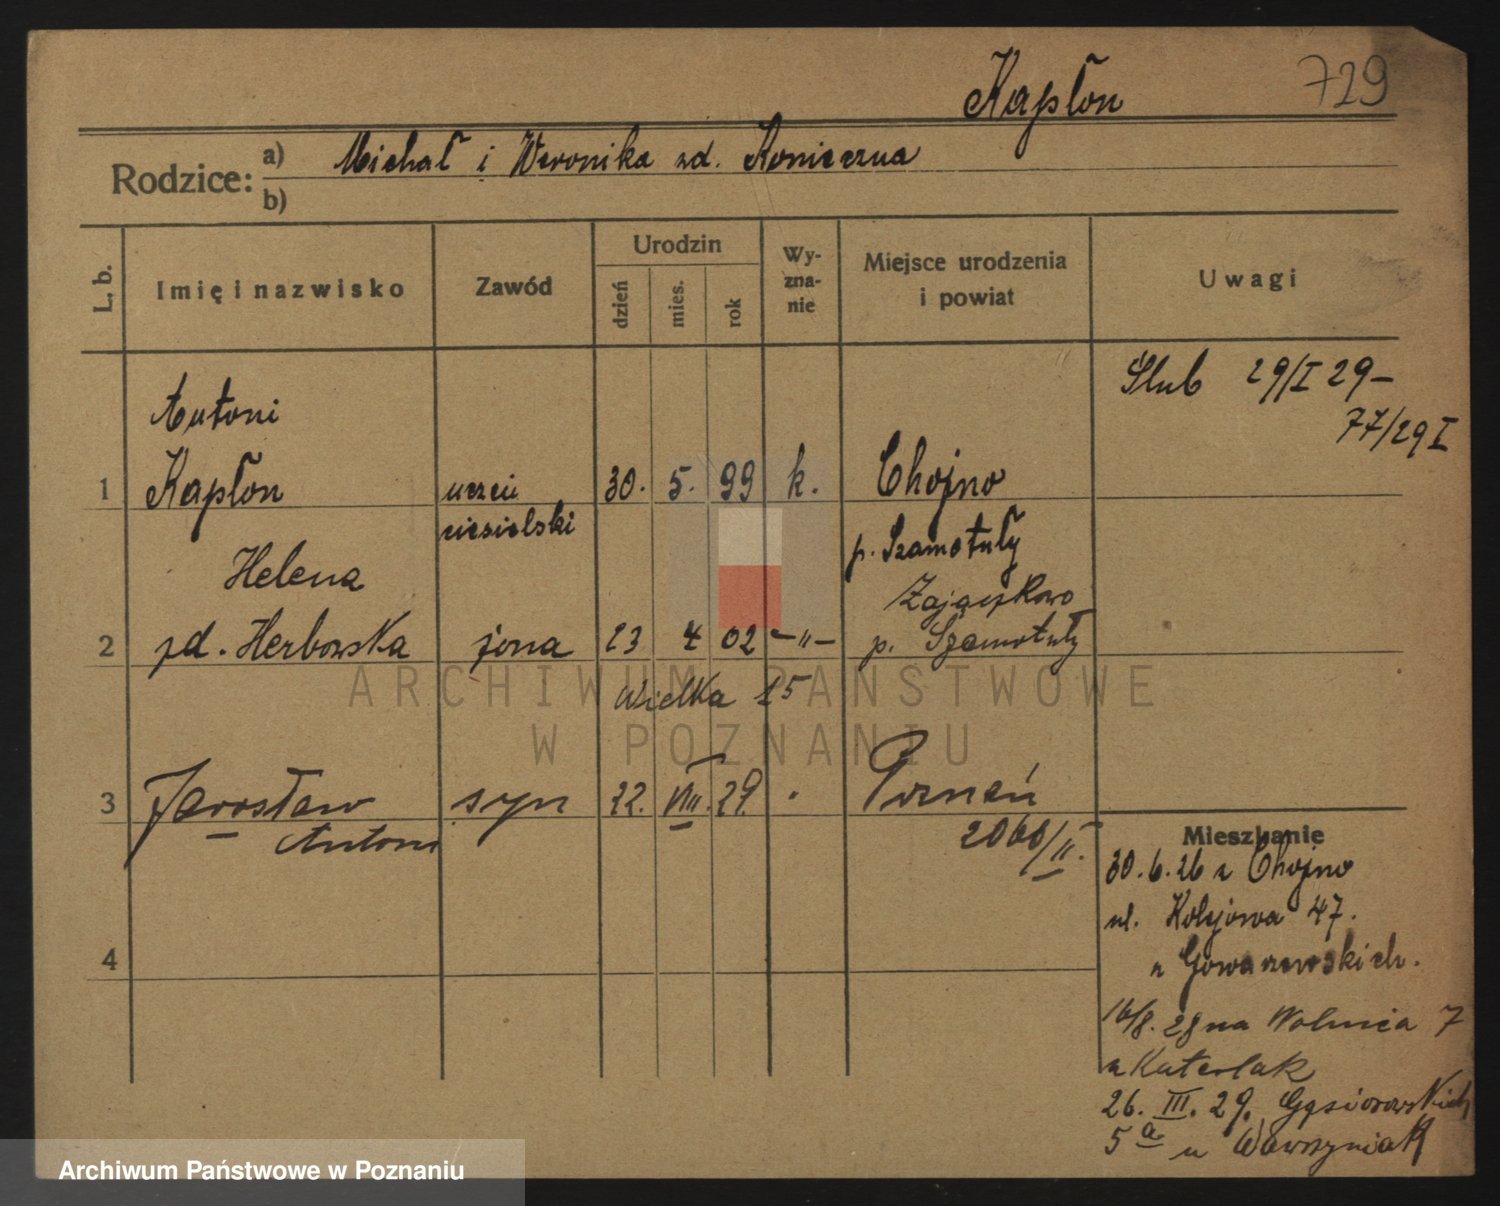 Kapłon 729
Rodzice: a) Michał i Weronika zd. Konieczna
b)
L. b. Imię i nazwisko Zawód Urodzin dzień mies. rok Wy-zna-nie Miejsce urodzenia i powiat Uwagi
Ślub 29/I 29 –
77/29 I
Antoni
1 Kapłon uczeń 30. 5. 99 k. Chojno
ciesielski p. Szamotuły
Helena Zajączkowo
2 zd. Herbowska żona 23 4 02 –„– p. Szamotuły
Wielka 25
3 Jarosław syn 22. VIII. 29. Poznań
Antoni 2060/II.
4
Mieszkanie
30. 6. 26 z Chojno
ul. Kolejowa 47.
u Gowarzewskich.
16/8. 28 na Wolnica 7
u Katerlak
26. III. 29. Gąsiorowskich
5 a u Wawrzyniak
ARCHIWUM PAŃSTWOWE
W POZNANIU
Archiwum Państwowe w Poznaniu